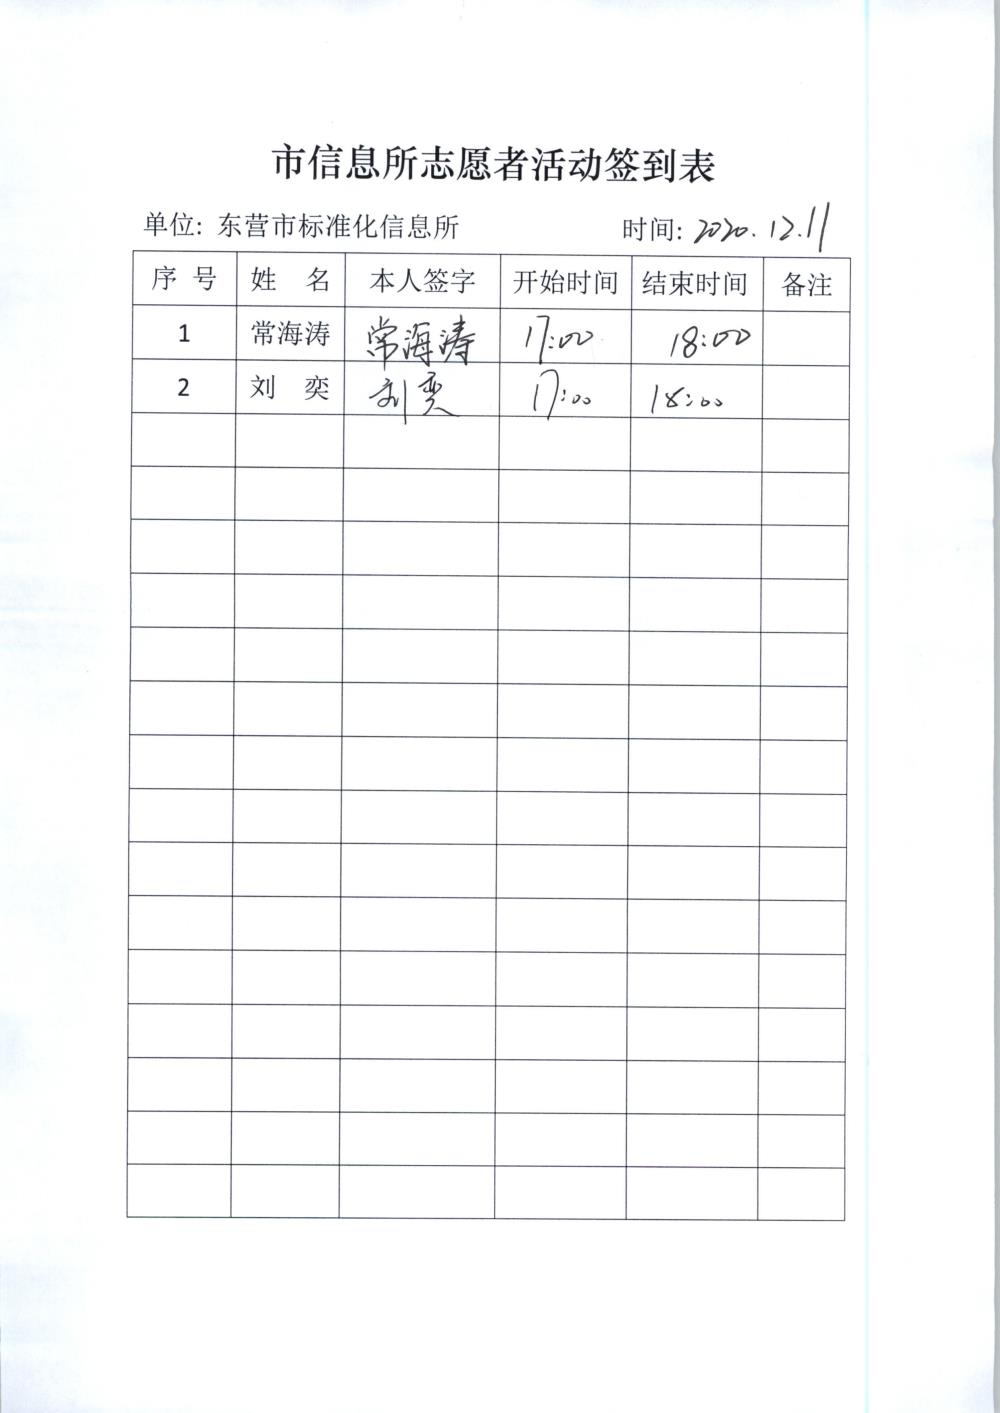 市信息所志愿者活动签到表
单位: 东营市标准化信息所 时间: 2020.12.11
序 号 姓 名 本人签字 开始时间 结束时间 备注
1 常海涛 常海涛 17:00 18:00
2 刘 奕 刘奕 17:00 18:00